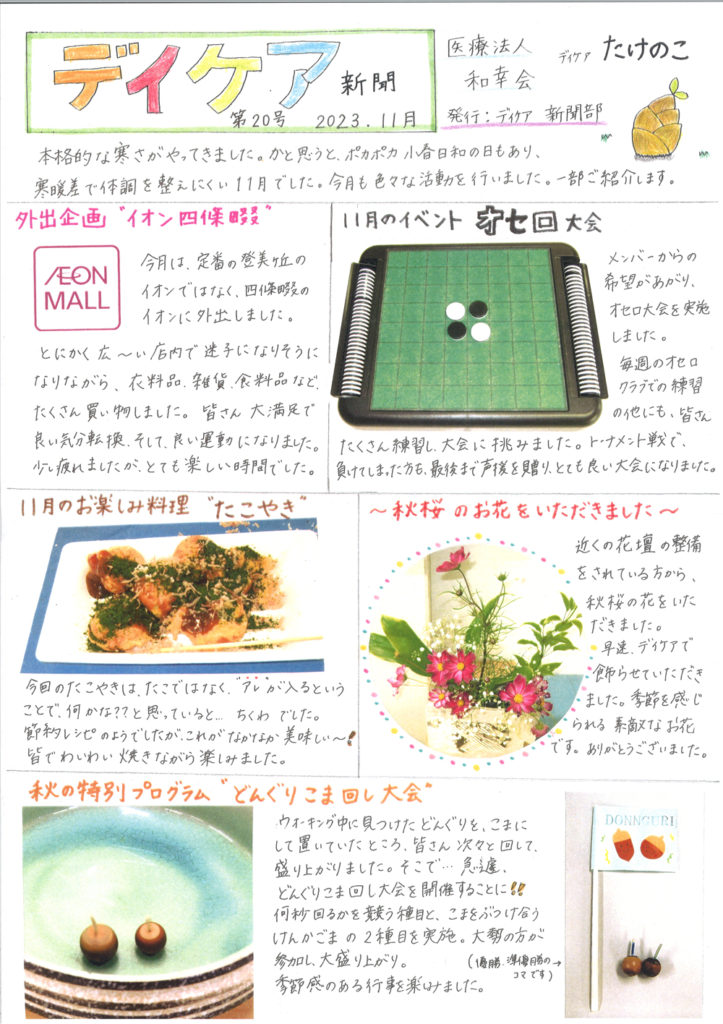 デイケア 新聞
第20号 2023.11月
医療法人
和幸会
デイケア たけのこ
発行：デイケア 新聞部
本格的な寒さがやってきました。かと思うと、ポカポカ小春日和の日もあり、
寒暖差で体調を整えにくい11月でした。今月も色々な活動を行いました。一部ご紹介します。
外出企画 "イオン四條畷"
AEON
MALL
今月は、定番の登美ヶ丘の
イオンではなく、四條畷の
イオンに外出しました。
とにかく広〜い店内で迷子になりそうに
なりながら、衣料品、雑貨、食料品など、
たくさん買い物しました。皆さん大満足で
良い気分転換、そして、良い運動になりました。
少し疲れましたが、とても楽しい時間でした。
11月のイベント オセロ大会
メンバーからの
希望があがり、
オセロ大会を実施
しました。
毎週のオセロ
クラブでの練習
の他にも、皆さん
たくさん練習し、大会に挑みました。トーナメント戦で、
負けてしまった方も、最後まで声援を贈り、とても良い大会になりました。
11月のお楽しみ料理 "たこやき"
今回のたこやきは、たこではなく、"アレ"が入るという
ことで、何かな??と思っていると… ちくわ でした。
節約レシピのようでしたが、これがなかなか美味しい〜!
皆でわいわい焼きながら楽しみました。
〜秋桜のお花をいただきました〜
近くの花壇の整備
をされている方から、
秋桜の花をいた
だきました。
早速、デイケアで
飾らせていただき
ました。季節を感じ
られる素敵なお花
です。ありがとうございました。
秋の特別プログラム "どんぐりこま回し大会"
ウォーキング中に見つけたどんぐりを、こまに
して置いていたところ、皆さん次々と回して、
盛り上がりました。そこで… 急遽、
どんぐりこま回し大会を開催することに!!
何秒回るかを競う種目と、こまをぶつけ合う
けんかごまの2種目を実施。大勢の方が
参加し、大盛り上がり。
季節感のある行事を楽しみました。
(優勝、準優勝の→
コマです)
DONNGURI